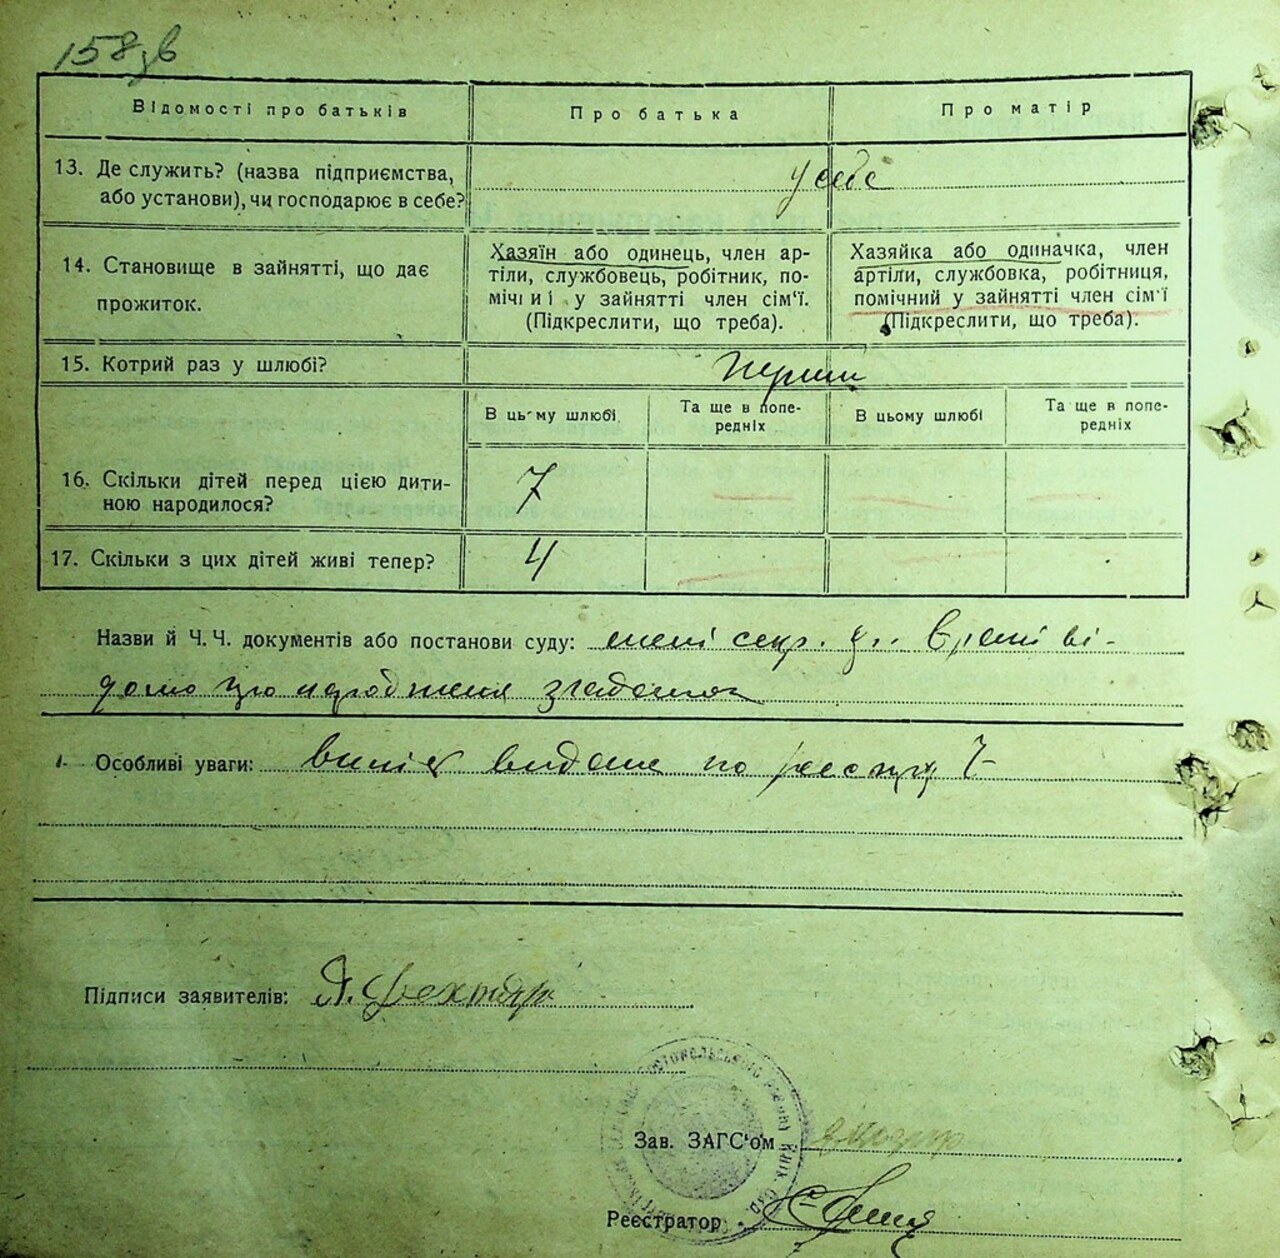 158зв
Відомості про батьків
Про батька
Про матір
13. Де служить? (назва підприємства,
або установи), чи господарює в себе?
у себе
14. Становище в зайнятті, що дає
прожиток.
Хазяїн або одинець, член ар-
тіли, службовець, робітник, по-
мічний у зайнятті член сім'ї.
(Підкреслити, що треба).
Хазяйка або одиначка, член
артіли, службовка, робітниця,
помічний у зайнятті член сім'ї
(Підкреслити, що треба).
15. Котрий раз у шлюбі?
Перший
В цьому шлюбі
Та ще в попе-
редніх
В цьому шлюбі
Та ще в попе-
редніх
16. Скільки дітей перед цією дити-
ною народилося?
7
17. Скільки з цих дітей живі тепер?
4
Назви й Ч.Ч. документів або постанови суду: мені секр.
Особливі уваги: випис видано по реєстру 7
Підписи заявителів:
Зав. ЗАГС'ом
Реєстратор